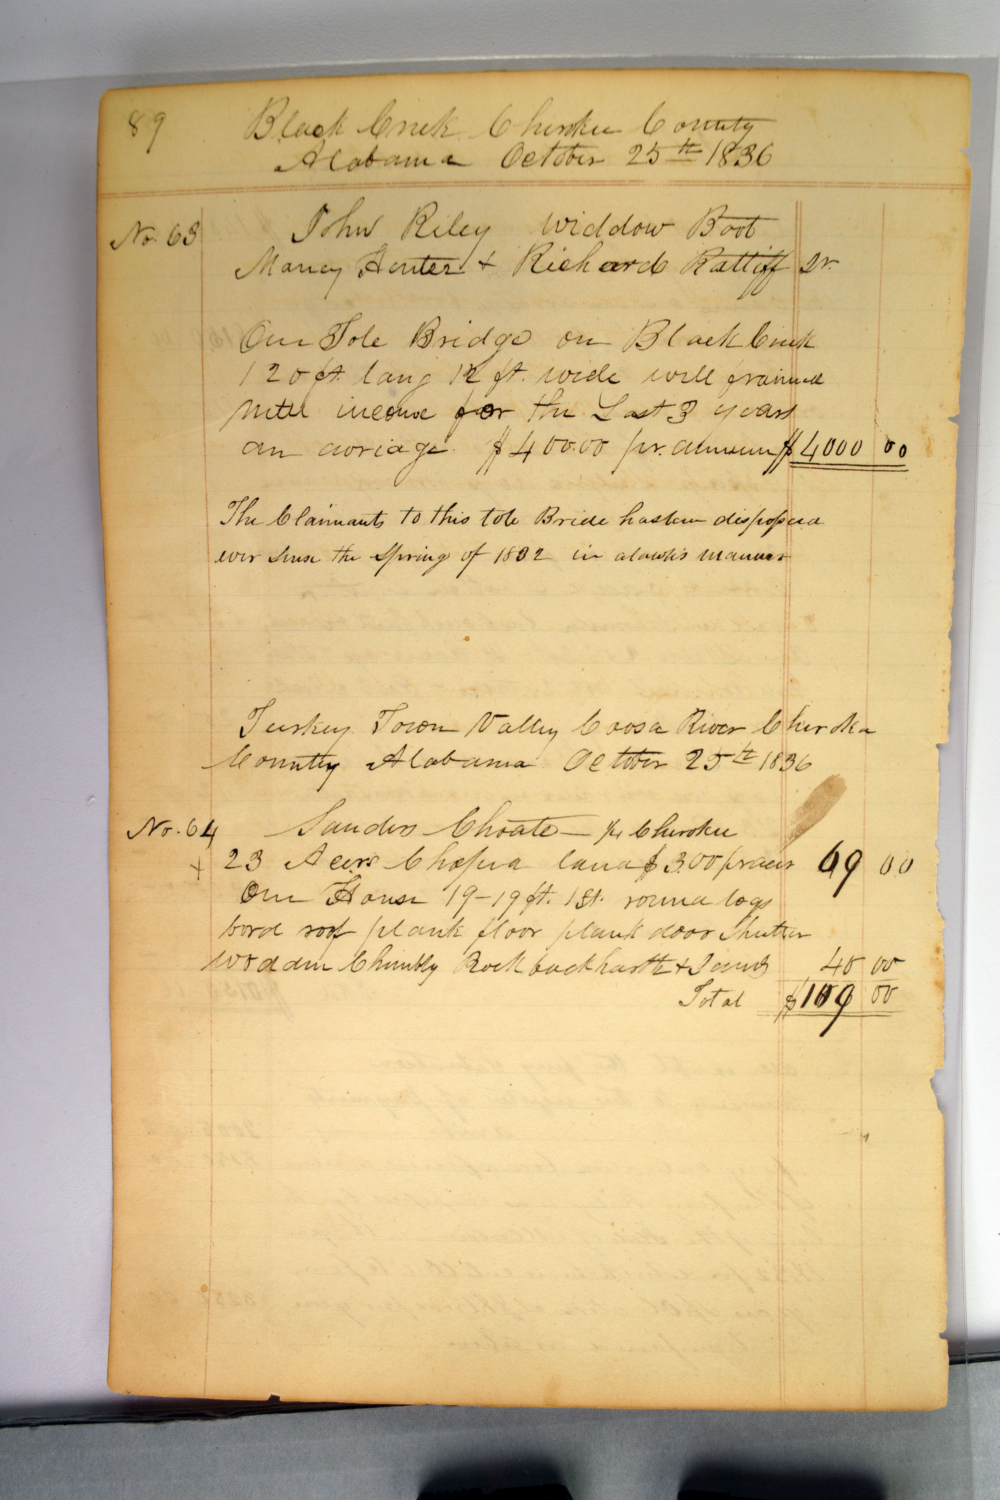 89
Black Creek Cherokee County
Alabama October 25th 1836
No. 63
John Riley Widdow Boot
Maney Henter & Richard Ratliff Dr.
One Tole Bridge on Black Creek
120 ft. lang 12 ft. wide well framed
nett income for the Last 3 years
an avriage $400.00 pr. annum $4000 00
The Claimants to this tole Bride has been dispossed
ever sense the Spring of 1832 in a manner
Turkey Town Valley Coosa River Cheroke
County Alabama October 25th 1836
No. 64 Sanders Choate — Cherokee
+ 23 Acers land $3.00 pr acer 69 00
One House 19-19 ft. 1 St. round logs
bord roof plank floor plank door Shutter
Wodden Chimbly Rock back harth & Jambs 40 00
Total $109 00